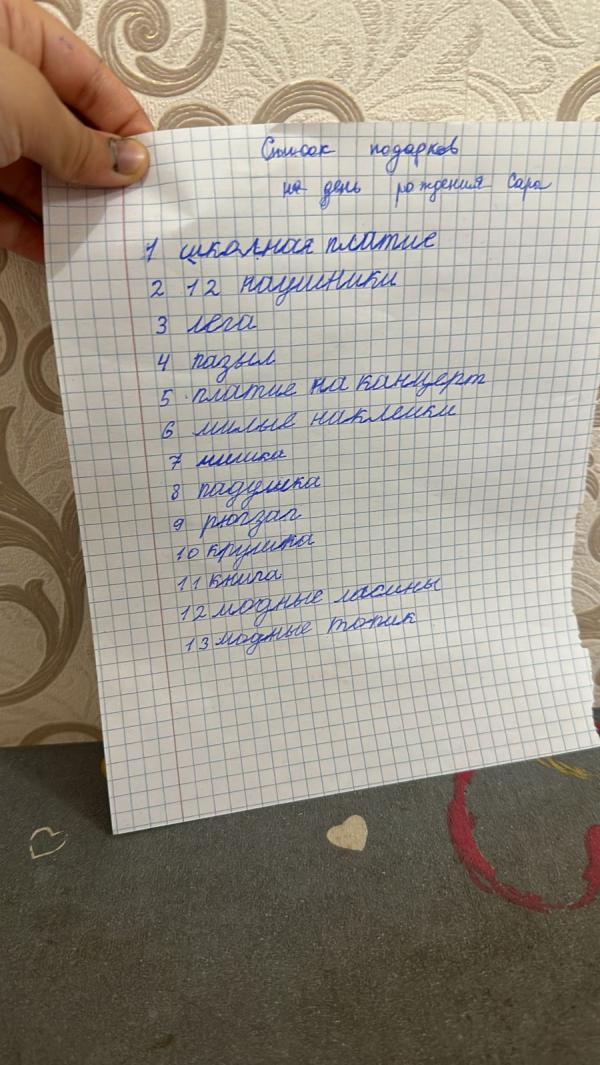 Список подарков
на день рождения Сара
1 школная платие
2 12 наушники
3 лега
4 пазыл
5 платие на канцерт
6 милые наклейки
7 мишка
8 падушка
9 рюгзаг
10 кружка
11 книга
12 модные ласины
13 модные топик